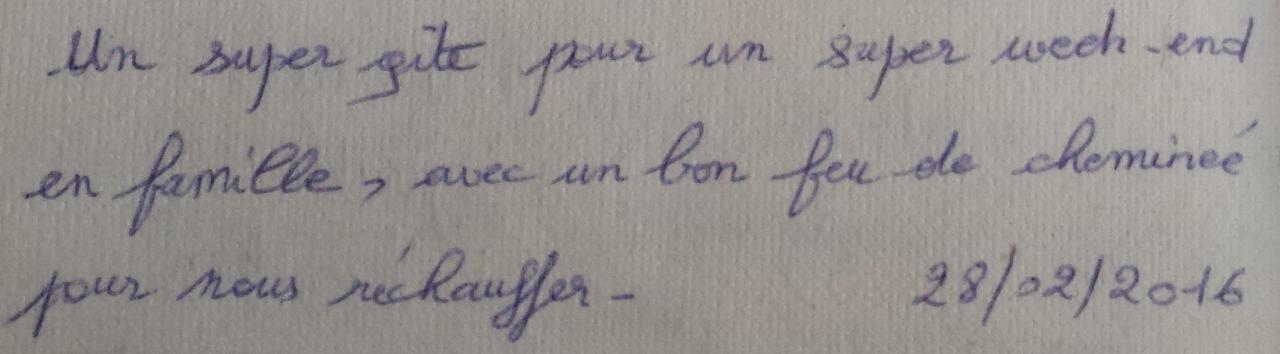 Un super gîte pour un super week-end
en famille, avec un bon feu de chemineé
pour nous réchauffer -    28/02/2016